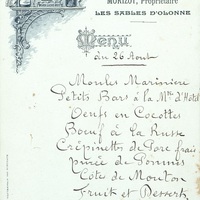 MORIZOT, Propriétaire
LES SABLES D'OLONNE
Menu
du 26 Aout
Moules Marinière
Petits Bars à la Mtre d'Hotel
Oeufs en Cocottes
Boeuf à la Russe
Crépinettes de Porc frais
purée de Pommes
Côte de Mouton
Fruit et Desserts